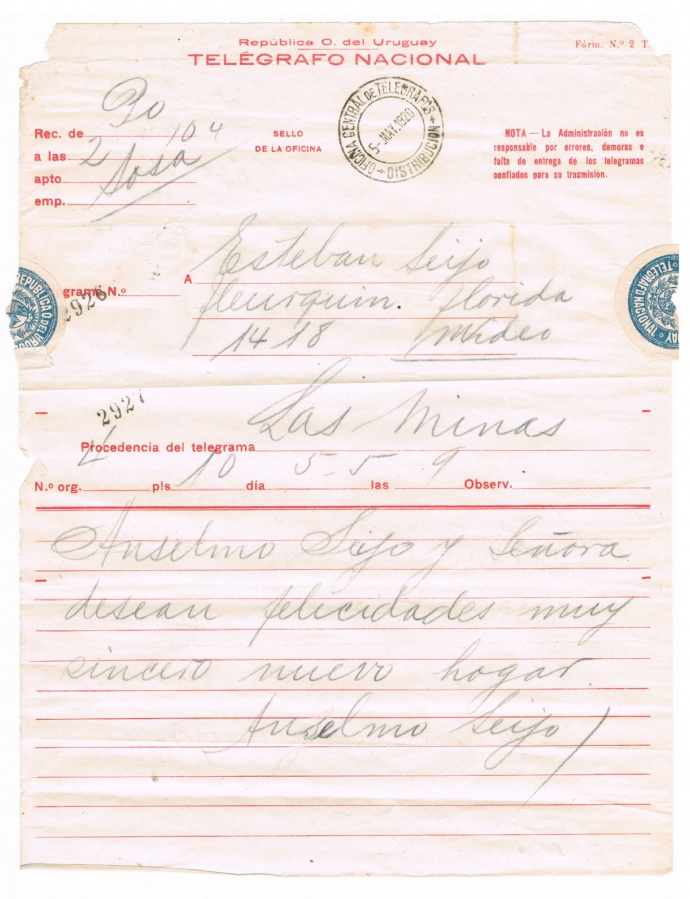 República O. del Uruguay
TELÉGRAFO NACIONAL
Fórm. N.º 2 T
Rec. de 90
a las 2 104
apto Sosa
emp.
SELLO
DE LA OFICINA
OFICINA CENTRAL DE TELEGRAFOS
5-MAY.1926
DISTRIBUCION
NOTA — La Administración no es
responsable por errores, demoras o
falta de entrega de los telegramas
confiados para su trasmisión.
A Esteban Seijo
grama N.º 2926
fleurquin. florida
1418 Mvdeo
REPUBLICA O. DEL URUG
TELEGRAFO NACIONAL
UAY
2927
Procedencia del telegrama Las Minas
N.º org. 4 pls 10 día 5-5 las 9 Observ.
Anselmo Seijo y Señora
desean felicidades muy
sincero nuevo hogar.
Anselmo Seijo